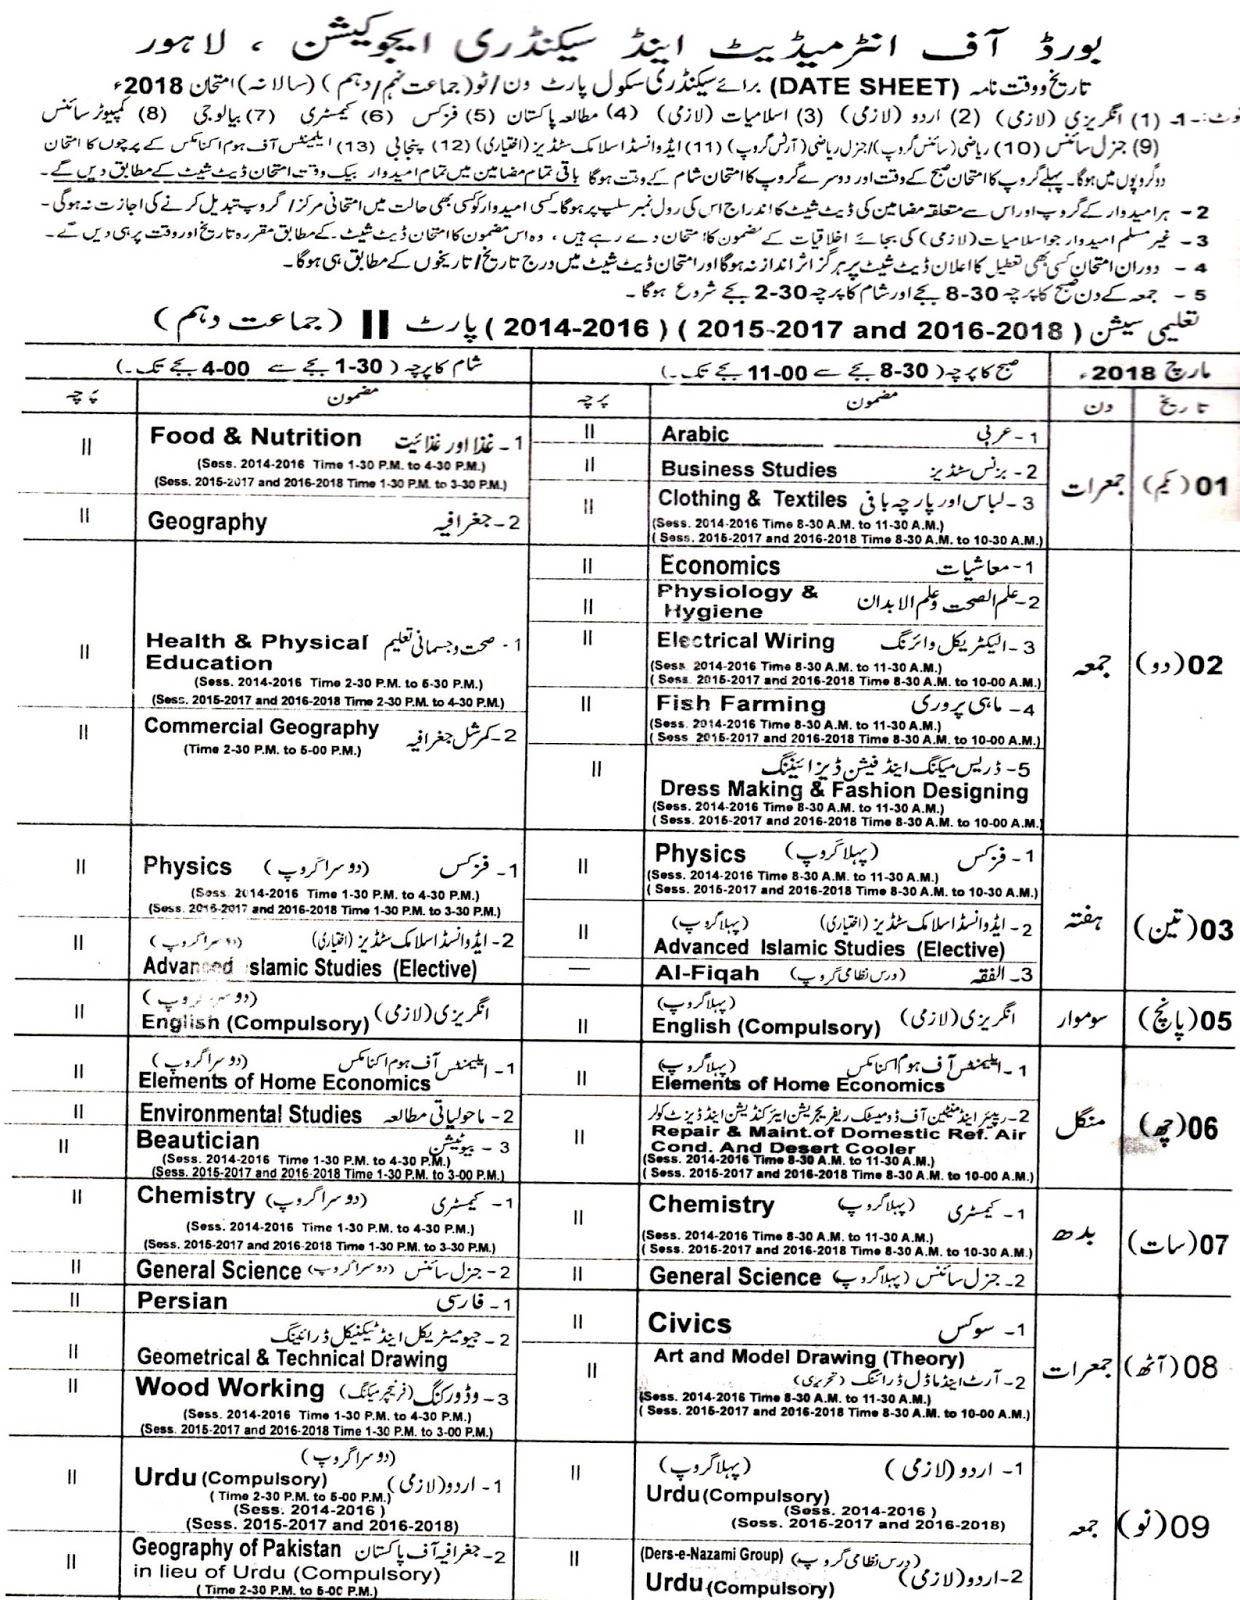 بورڈ آف انٹرمیڈیٹ اینڈ سیکنڈری ایجوکیشن ، لاہور
تاریخ و وقت نامہ (DATE SHEET) برائے سیکنڈری سکول پارٹ ون/ٹو (جماعت نہم/دہم) (سالانہ) امتحان 2018ء
نوٹ:۔ 1۔ (1) انگریزی (لازمی) (2) اردو (لازمی) (3) اسلامیات (لازمی) (4) مطالعہ پاکستان (5) فزکس (6) کیمسٹری (7) بیالوجی (8) کمپیوٹر سائنس
(9) جنرل سائنس (10) ریاضی (سائنس گروپ)/جنرل ریاضی (آرٹس گروپ) (11) ایڈوانسڈ اسلامک سٹڈیز (اختیاری) (12) پنجابی (13) ایلیمنٹس آف ہوم اکنامکس کے پرچوں کا امتحان
دو گروپوں میں ہوگا۔ پہلے گروپ کا امتحان صبح کے وقت اور دوسرے گروپ کا امتحان شام کے وقت ہوگا باقی تمام مضامین میں تمام امیدوار بیک وقت امتحان ڈیٹ شیٹ کے مطابق دیں گے۔
2 - ہر امیدوار کے گروپ اور اس سے متعلقہ مضامین کی ڈیٹ شیٹ کا اندراج اس کی رول نمبر سلپ پر ہوگا۔ کسی امیدوار کو کسی بھی حالت میں امتحانی مرکز/گروپ تبدیل کرنے کی اجازت نہ ہوگی۔
3 - غیر مسلم امیدوار جو اسلامیات (لازمی) کی بجائے اخلاقیات کے مضمون کا امتحان دے رہے ہیں ، وہ اس مضمون کا امتحان ڈیٹ شیٹ کے مطابق مقررہ تاریخ اور وقت پر ہی دیں گے۔
4 - دوران امتحان کسی بھی تعطیل کا اعلان ڈیٹ شیٹ پر ہرگز اثر انداز نہ ہوگا اور امتحان ڈیٹ شیٹ میں درج تاریخ/تاریخوں کے مطابق ہی ہوگا۔
5 - جمعہ کے دن صبح کا پرچہ 30-8 بجے اور شام کا پرچہ 30-2 بجے شروع ہوگا۔
تعلیمی سیشن (2015-2017 and 2016-2018) (2014-2016) پارٹ II (جماعت دہم)
مارچ 2018ء
صبح کا پرچہ (30-8 بجے سے 00-11 بجے تک۔)
شام کا پرچہ (30-1 بجے سے 00-4 بجے تک۔)
تاریخ دن مضمون پرچہ مضمون پرچہ
01 (یکم) جمعرات
1- عربی Arabic II
2- بزنس سٹڈیز Business Studies II
3- لباس اور پارچہ بافی Clothing & Textiles II
(Sess. 2014-2016 Time 8-30 A.M. to 11-30 A.M.)
(Sess. 2015-2017 and 2016-2018 Time 8-30 A.M. to 10-30 A.M.)
1- غذا اور غذائیت Food & Nutrition II
(Sess. 2014-2016 Time 1-30 P.M. to 4-30 P.M.)
(Sess. 2015-2017 and 2016-2018 Time 1-30 P.M. to 3-30 P.M.)
2- جغرافیہ Geography II
02 (دو) جمعہ
1- معاشیات Economics II
2- علم الصحت و علم الابدان Physiology & Hygiene II
3- الیکٹریکل وائرنگ Electrical Wiring II
(Sess. 2014-2016 Time 8-30 A.M. to 11-30 A.M.)
(Sess. 2015-2017 and 2016-2018 Time 8-30 A.M. to 10-00 A.M.)
4- ماہی پروری Fish Farming II
(Sess. 2014-2016 Time 8-30 A.M. to 11-30 A.M.)
(Sess. 2015-2017 and 2016-2018 Time 8-30 A.M. to 10-00 A.M.)
5- ڈریس میکنگ اینڈ فیشن ڈیزائننگ II
Dress Making & Fashion Designing
(Sess. 2014-2016 Time 8-30 A.M. to 11-30 A.M.)
(Sess. 2015-2017 and 2016-2018 Time 8-30 A.M. to 10-00 A.M.)
1- صحت و جسمانی تعلیم Health & Physical Education II
(Sess. 2014-2016 Time 2-30 P.M. to 5-30 P.M.)
(Sess. 2015-2017 and 2016-2018 Time 2-30 P.M. to 4-30 P.M.)
2- کمرشل جغرافیہ Commercial Geography II
(Time 2-30 P.M. to 5-00 P.M.)
03 (تین) ہفتہ
1- فزکس (پہلا گروپ) Physics II
(Sess. 2014-2016 Time 8-30 A.M. to 11-30 A.M.)
(Sess. 2015-2017 and 2016-2018 Time 8-30 A.M. to 10-30 A.M.)
2- ایڈوانسڈ اسلامک سٹڈیز (اختیاری) (پہلا گروپ) II
Advanced Islamic Studies (Elective)
3- الفقہ (درس نظامی گروپ) Al-Fiqah —
1- فزکس (دوسرا گروپ) Physics II
(Sess. 2014-2016 Time 1-30 P.M. to 4-30 P.M.)
(Sess. 2015-2017 and 2016-2018 Time 1-30 P.M. to 3-30 P.M.)
2- ایڈوانسڈ اسلامک سٹڈیز (اختیاری) (دوسرا گروپ) II
Advanced Islamic Studies (Elective)
05 (پانچ) سوموار
انگریزی (لازمی) (پہلا گروپ) English (Compulsory) II
انگریزی (لازمی) (دوسرا گروپ) English (Compulsory) II
06 (چھ) منگل
1- ایلیمنٹس آف ہوم اکنامکس (پہلا گروپ) II
Elements of Home Economics
2- ریپئر اینڈ مینٹیننس آف ڈومیسٹک ریفریجریشن ایئر کنڈیشن اینڈ ڈیزرٹ کولر II
Repair & Maint.of Domestic Ref. Air
Cond. And Desert Cooler
(Sess. 2014-2016 Time 8-30 A.M. to 11-30 A.M.)
(Sess. 2015-2017 and 2016-2018 Time 8-30 A.M. to 10-00 A.M.)
1- ایلیمنٹس آف ہوم اکنامکس (دوسرا گروپ) II
Elements of Home Economics
2- ماحولیاتی مطالعہ Environmental Studies II
3- بیوٹیشن Beautician II
(Sess. 2014-2016 Time 1-30 P.M. to 4-30 P.M.)
(Sess. 2015-2017 and 2016-2018 Time 1-30 P.M. to 3-00 P.M.)
07 (سات) بدھ
1- کیمسٹری (پہلا گروپ) Chemistry II
(Sess. 2014-2016 Time 8-30 A.M. to 11-30 A.M.)
(Sess. 2015-2017 and 2016-2018 Time 8-30 A.M. to 10-30 A.M.)
2- جنرل سائنس (پہلا گروپ) General Science II
1- کیمسٹری (دوسرا گروپ) Chemistry II
(Sess. 2014-2016 Time 1-30 P.M. to 4-30 P.M.)
(Sess. 2015-2017 and 2016-2018 Time 1-30 P.M. to 3-30 P.M.)
2- جنرل سائنس (دوسرا گروپ) General Science II
08 (آٹھ) جمعرات
1- سوکس Civics II
Art and Model Drawing (Theory) II
2- آرٹ اینڈ ماڈل ڈرائنگ (تحریری)
(Sess. 2014-2016 Time 8-30 A.M. to 11-30 A.M.)
(Sess. 2015-2017 and 2016-2018 Time 8-30 A.M. to 10-00 A.M.)
1- فارسی Persian II
2- جیومیٹریکل اینڈ ٹیکنیکل ڈرائینگ II
Geometrical & Technical Drawing
3- وڈ ورکنگ (فرنیچر میکنگ) Wood Working II
(Sess. 2014-2016 Time 1-30 P.M. to 4-30 P.M.)
(Sess. 2015-2017 and 2016-2018 Time 1-30 P.M. to 3-00 P.M.)
09 (نو) جمعہ
1- اردو (لازمی) (پہلا گروپ) II
Urdu (Compulsory)
(Sess. 2014-2016)
(Sess. 2015-2017 and 2016-2018)
(Ders-e-Nazami Group) (درس نظامی گروپ) II
2- اردو (لازمی) Urdu (Compulsory)
(دوسرا گروپ)
1- اردو (لازمی) Urdu (Compulsory) II
(Time 2-30 P.M. to 5-00 P.M.)
(Sess. 2014-2016)
(Sess. 2015-2017 and 2016-2018)
2- جغرافیہ آف پاکستان Geography of Pakistan II
in lieu of Urdu (Compulsory)
(Time 2-30 P.M. to 5-00 P.M.)